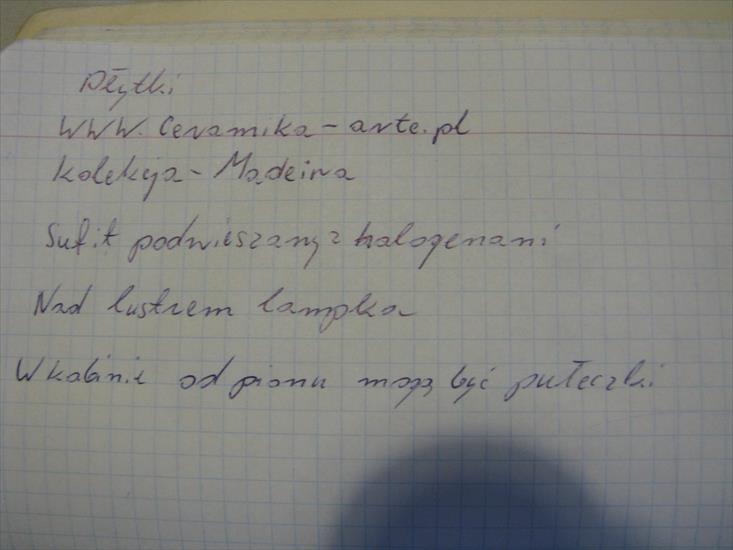 Płytki
WWW.Ceramika-arte.pl
Kolekcja - Madeira
Sufit podwieszany z halogenami
Nad lustrem lampka
W kabinie od pionu mogą być pułeczki